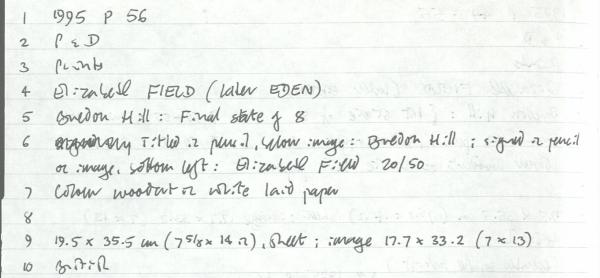 1 1995 P 56
2 P & D
3 Prints
4 Elizabeth FIELD (later EDEN)
5 Bredon Hill : Final state of 8
6 Titled in pencil, below image : Bredon Hill ; signed in pencil
on image, bottom left : Elizabeth Field 20/50
7 Colour woodcut on white laid paper
8
9 19.5 x 35.5 cm (7 5/8 x 14 in), sheet ; image 17.7 x 33.2 (7 x 13)
10 British